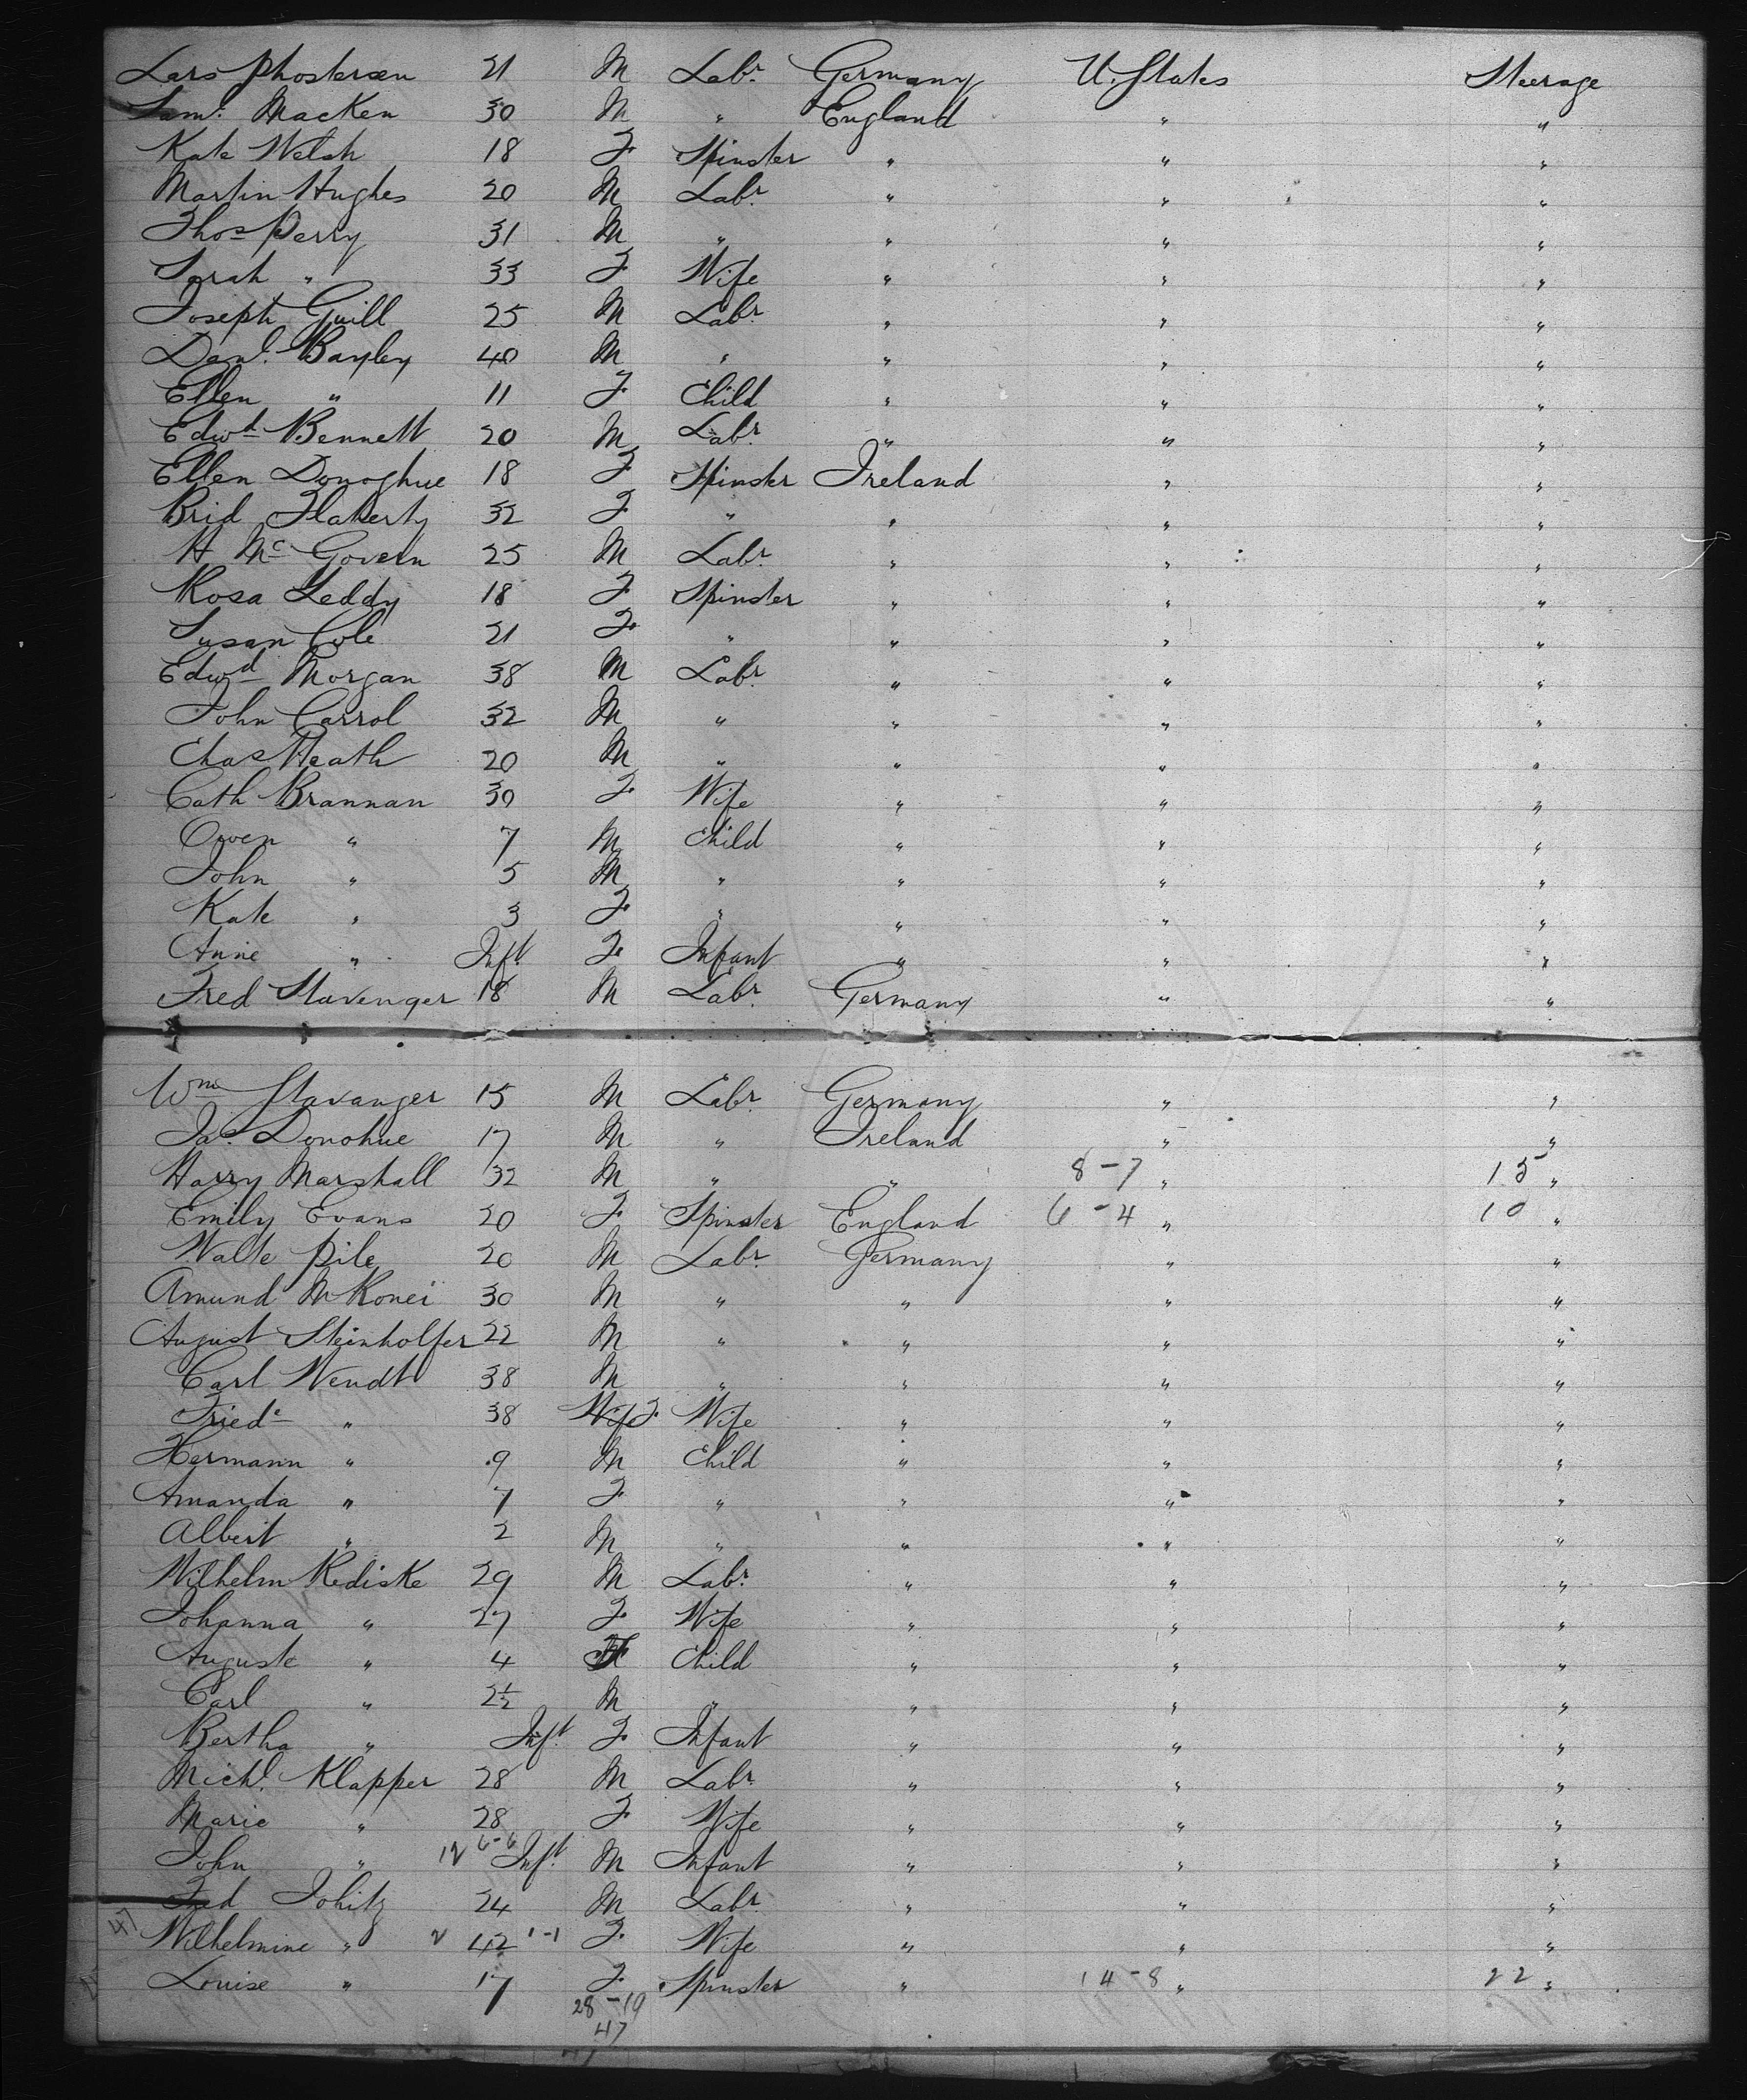 Lars Phostersen 21 M Labr. Germany U. States Steerage
Saml. Macken 30 M " England " "
Kate Welsh 18 F Spinster " " "
Martin Hughes 20 M Labr. " " "
Thos Perry 31 M " " " "
Sarah " 33 F Wife " " "
Joseph Guill 25 M Labr. " " "
Danl. Bayley 40 M " " " "
Ellen " 11 F Child " " "
Edwd Bennett 20 M Labr. " " "
Ellen Donoghue 18 F Spinster Ireland " "
Brid Flaherty 32 F " " " "
H McGovern 25 M Labr. " " "
Rosa Leddy 18 F Spinster " " "
Susan Cole 21 F " " " "
Edwd Morgan 38 M Labr. " " "
John Carrol 32 M " " " "
Chas Heath 20 M " " " "
Cath Brannan 30 F Wife " " "
Owen " 7 M Child " " "
John " 5 M " " " "
Kate " 3 F " " " "
Anne " Inft. F Infant " " "
Fred Stavenger 18 M Labr. Germany " "
Wm Stavanger 15 M Labr. Germany " "
Jas. Donohue 17 M " Ireland " "
Harry Marshall 32 M " " 8-7 " 15 "
Emily Evans 20 F Spinster England 6-4 " 10 "
Walte Pile 20 M Labr. Germany " "
Amund McKonei 30 M " " " "
August Steinholfer 22 M " " " "
Carl Wendt 38 M " " " "
Friede " 38 Wife F Wife " " "
Hermann " 9 M Child " " "
Amanda " 7 F " " " "
Albert " 2 M " " " "
Wilhelm Rediske 29 M Labr. " " "
Johanna " 27 F Wife " " "
Auguste " 4 F Child " " "
Carl " 2½ M " " " "
Bertha " Inft. F Infant " " "
Michl. Klapper 28 M Labr. " " "
Marie " 28 F Wife " " "
John " 12 6-6 Inft. M Infant " " "
Fred Johitz 24 M Labr. " " "
47 Wilhelmine " 2 42 1-1 F Wife " " "
Louise " 17 F Spinster " 14-8 " 22 "
28-19
47